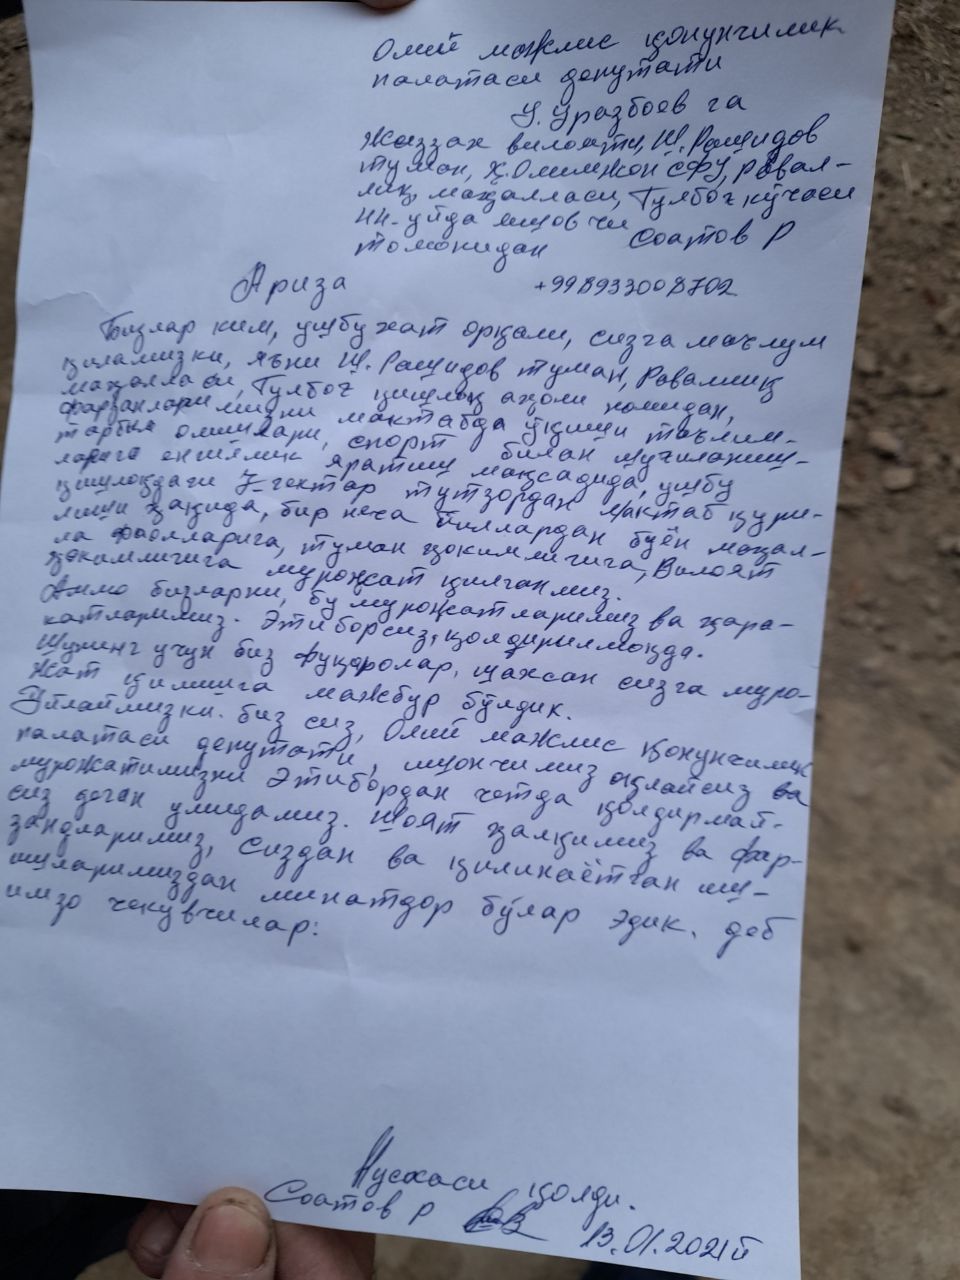 Олий мажлис қонунчилик
палатаси депутати
У. Уразбоев га
Жиззах вилояти, Ш. Рашидов
туман, Ҳ.Олимжон СФУ, Равал-
лиқ, маҳалласи, Гулбоғ кўчаси
44-уйда яшовчи
томонидан Соатов Р
Ариза +998933008702
Бизлар ким, ушбу хат орқали, сизга маълум
қиламизки, яъни Ш. Рашидов туман, Раваллиқ
маҳалласи, Гулбоғ қишлоқ аҳоли номидан,
фарзанларимизни мактабда ўқиши таълим-
тарбия олишлари, спорт билан шуғиланиш-
ларига енгиллик яратиш мақсадида, ушбу
қишлоқдаги 7-гектар тутзордан мактаб қури-
лиши ҳақида, бир неча йиллардан буён маҳал-
ла фаолларига, туман ҳокимлигига, Вилоят
ҳокимлигига мурожат қилганмиз.
Аммо бизларни, бу мурожатларимиз ва ҳара-
катларимиз. Этиборсиз, қолдирилмоқда.
Шунинг учун биз фуқоролар, шахсан сизга муро-
жат қилишга мажбур бўлдик.
Ўйлаймизки. биз сиз, Олий мажлис қонунчилик
палатаси депутати, ишончимиз оқлайсиз ва
мурожатимизни этибордан четда қолдирмай-
сиз деган умидамиз. Шоят ҳалқимиз ва фар-
зандларимиз, сиздан ва қилинаётган иш-
шуларимиздан минатдор бўлар эдик. деб
имзо чекувчилар:
Нусхаси қолди.
Соатов Р 13.01.2021й